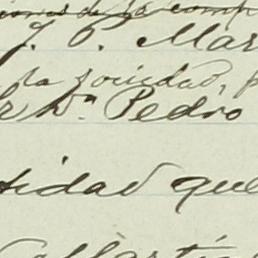 de la comp
J. P. Mar
la sociedad, p
Dn. Pedro
tidad que